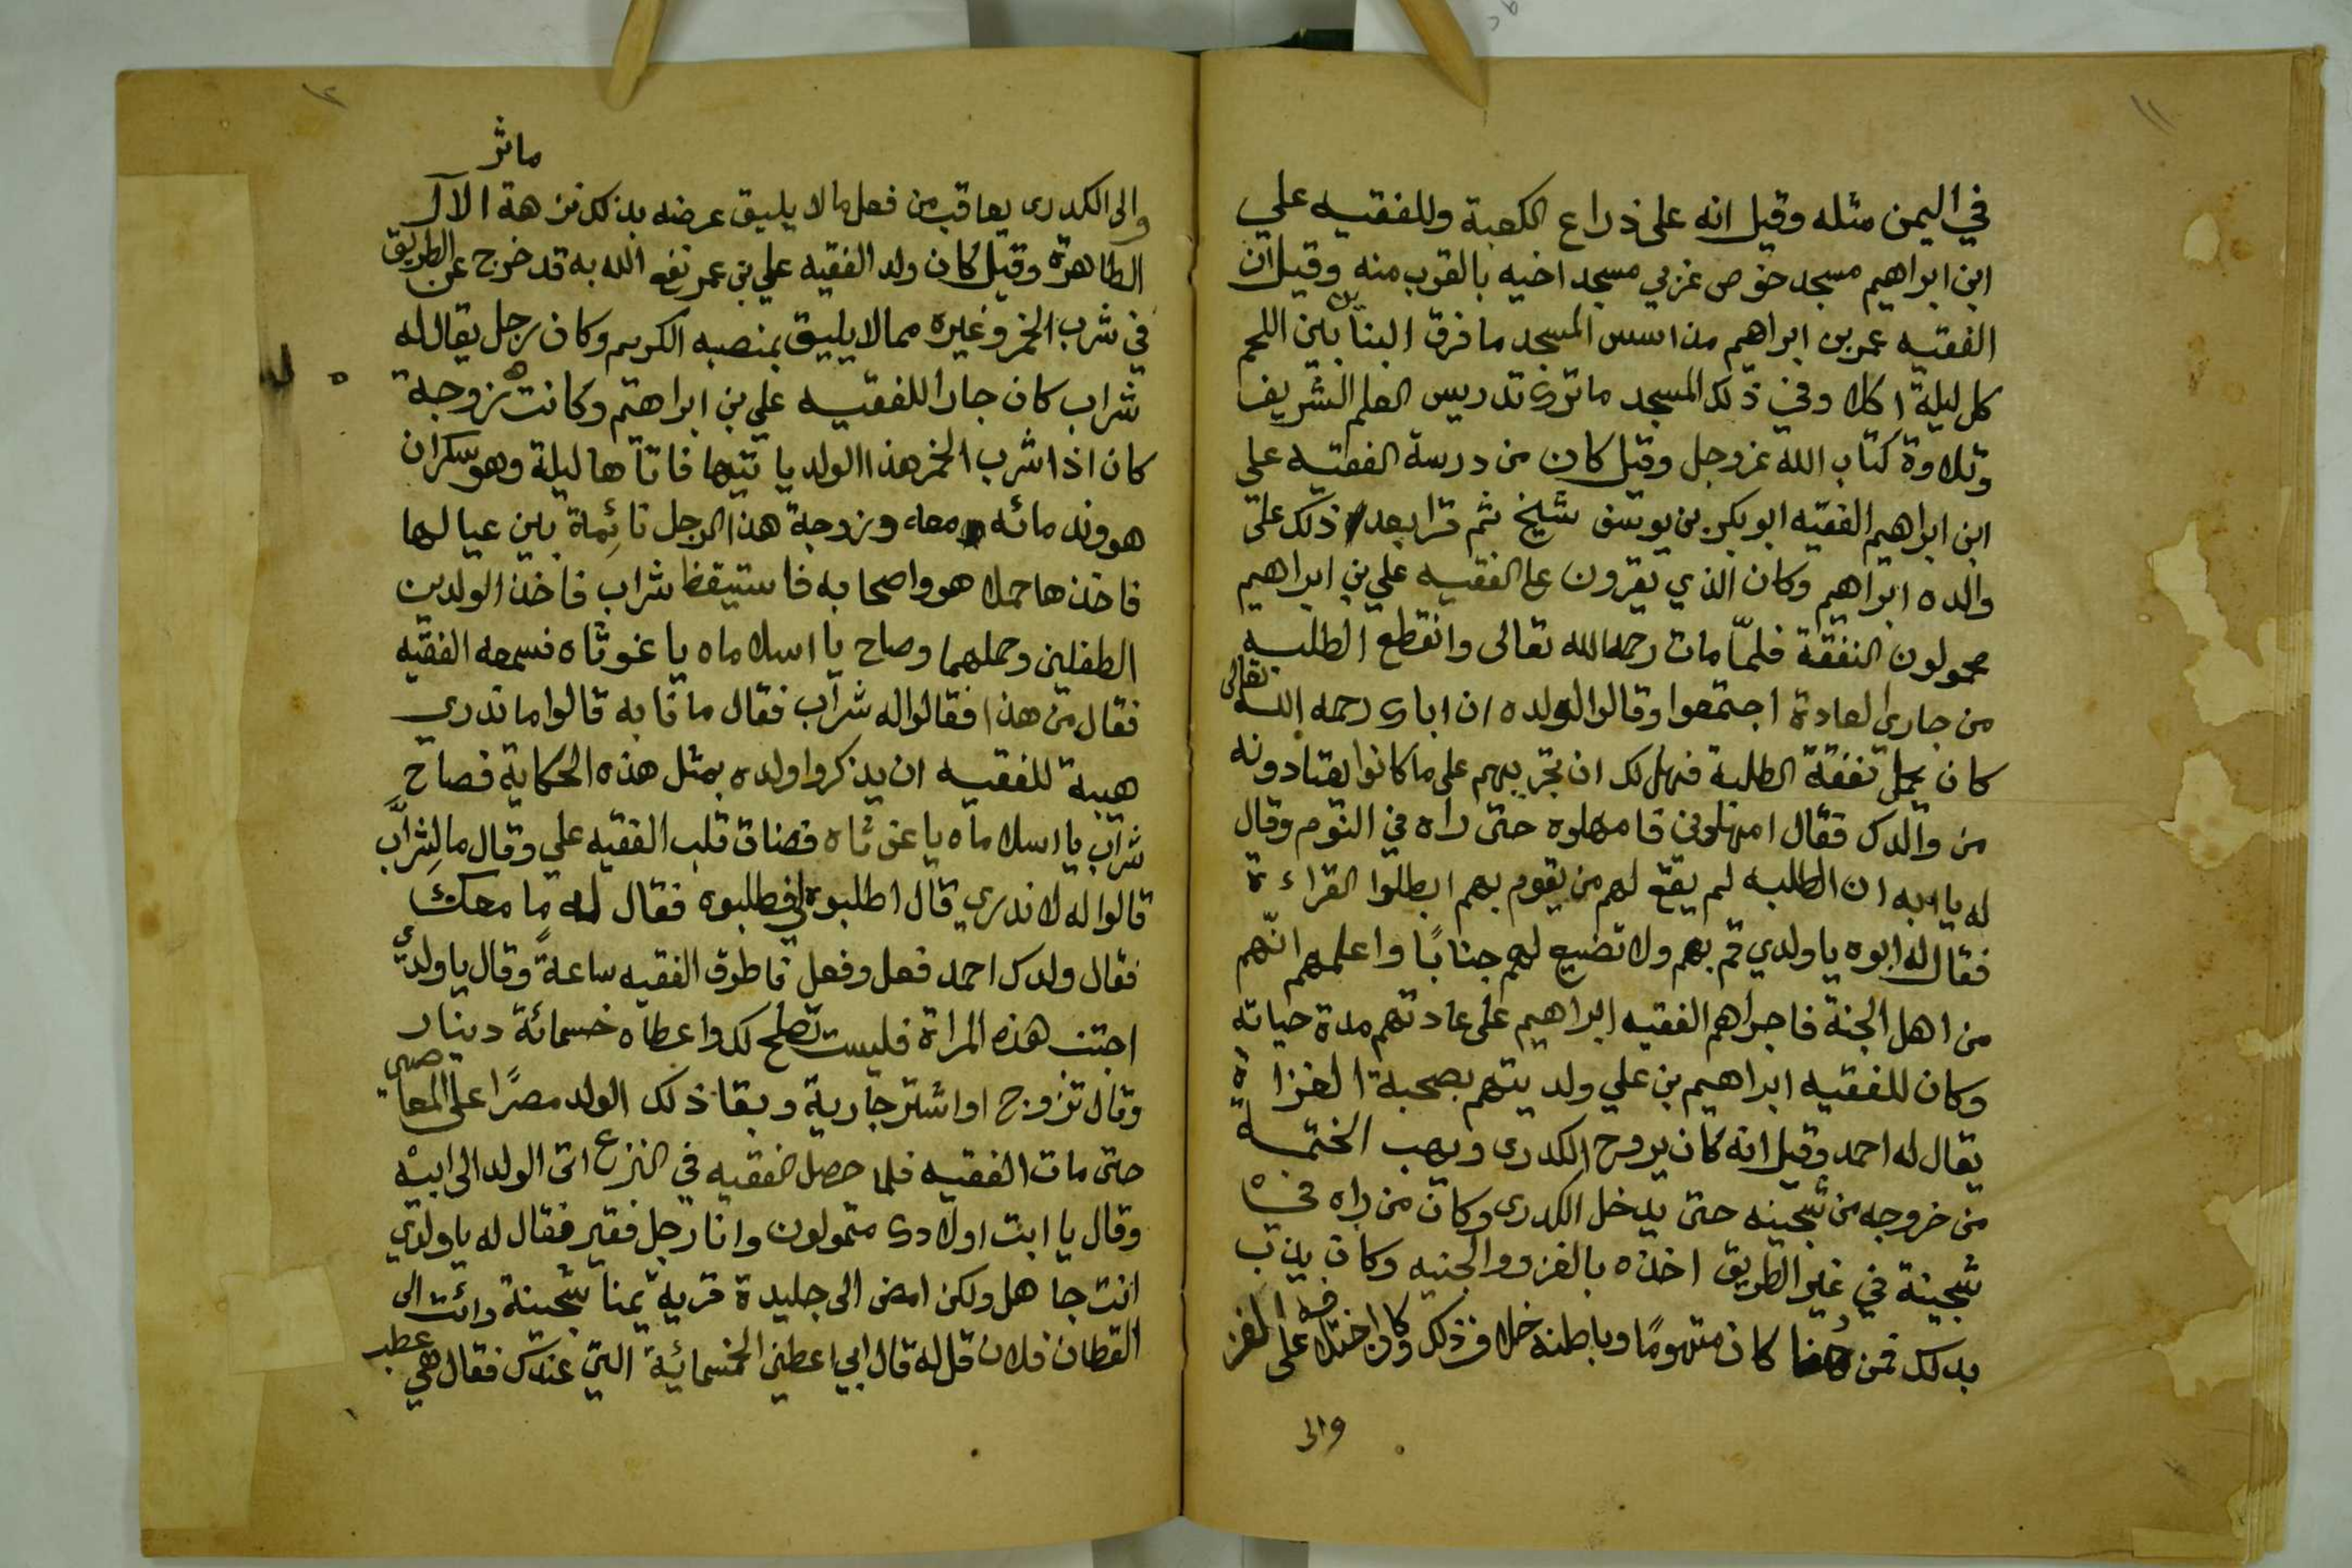 ١١
في اليمن مثله وقيل انه على ذراع الكعبة وللفقيه علي
ابن ابراهيم مسجد خوص غربي مسجد اخيه بالقرب منه وقيل ان
الفقيه عمر بن ابراهيم مذ اسس المسجد ما فرق البنا بين اللحم
كل ليلة وفي ذلك المسجد ماثرة تدريس العلم الشريف
وتلاوة كتاب الله عز وجل وقيل كان من درسة الفقيه علي
ابن ابراهيم الفقيه ابو بكر بن يوسف شيخ ثم قرا بعد ذلك على
والده ابراهيم وكان الذي يقرون على الفقيه علي بن ابراهيم
محمولون النفقة فلمّا مات رحمه الله تعالى وانقطع الطلبه
من جارى العادة اجتمعوا وقالوا لولده ان اباك رحمه الله تعالى
كان يحمل نفقة الطلبة فهل لك ان تجريهم على ما كانوا يعتادونه
من والدك فقال امهلوني فامهلوه حتى راه في النوم وقال
له يا ابه ان الطلبه لم يقع لهم من يقوم بهم ابطلوا القراءة
فقال له ابوه يا ولدي قم بهم ولا تضيع لهم جنابًا واعلمهم انّهم
من اهل الجنة فاجراهم الفقيه ابراهيم على عادتهم مدة حياته
وكان للفقيه ابراهيم بن علي ولد يتهم بصحبة الغزاة
يقال له احمد وقيل انه كان يروح الكدرى ويهب الختمه
من خروجه من شجينه حتى يدخل الكدرى وكان من راه في
شجينة في غير الطريق اخذه بالغزو والجنيه وكان
بذلك فمن كان متهومًا وباطنه خلاف ذلك
والى
١٢
ماثر
والى الكدرى يعاقب من فعل ما لا يليق عرضه بذلك نزهة الآل
الطاهرة وقيل كان ولد الفقيه علي بن عمر نفع الله به قد خرج عن الطريق
في شرب الخمر وغيره مما لا يليق بمنصبه الكريم وكان رجل يقال له
شراب كان جارا للفقيه علي بن ابراهيم وكانت زوجة
كان اذا شرب الخمر هذا الولد ياتيها فاتاها ليلة وهو سكران
هو وندمائه معه وزوجة هذا الرجل نائمة بين عيالها
فاخذها حملا هو واصحابه فاستيقظ شراب فاخذ الولدين
الطفلين وحملهما وصاح يا اسلاماه يا غوثاه فسمعه الفقيه
فقال من هذا فقالوا له شراب فقال ما نابه قالوا ما ندري
هيبة للفقيه ان يذكروا ولده بمثل هذه الحكاية فصاح
شراب يا اسلاماه يا غوثاه فضاق قلب الفقيه علي وقال ما لشراب
قالوا له لا ندري قال اطلبوه لي فطلبوه فقال له ما معك
فقال ولدك احمد فعل وفعل فاطرق الفقيه ساعةً وقال يا ولدي
اجتنب هذه المراة فليست تصلح لك واعطاه خسمائة دينار
وقال تزوج او اشتر جارية وبقا ذلك الولد مصرًا على المعاصي
حتى مات الفقيه فلما حصل الفقيه في النزع اتى الولد الى ابيه
وقال يا ابت اولادك متمولون وانا رجل فقير فقال له يا ولدي
انت جاهل ولكن امض الى جليدة قرية شجينة وائت الى
القطان فلان قل له قال ابي اعطيني الخمسمائية التي عندك فقال هي